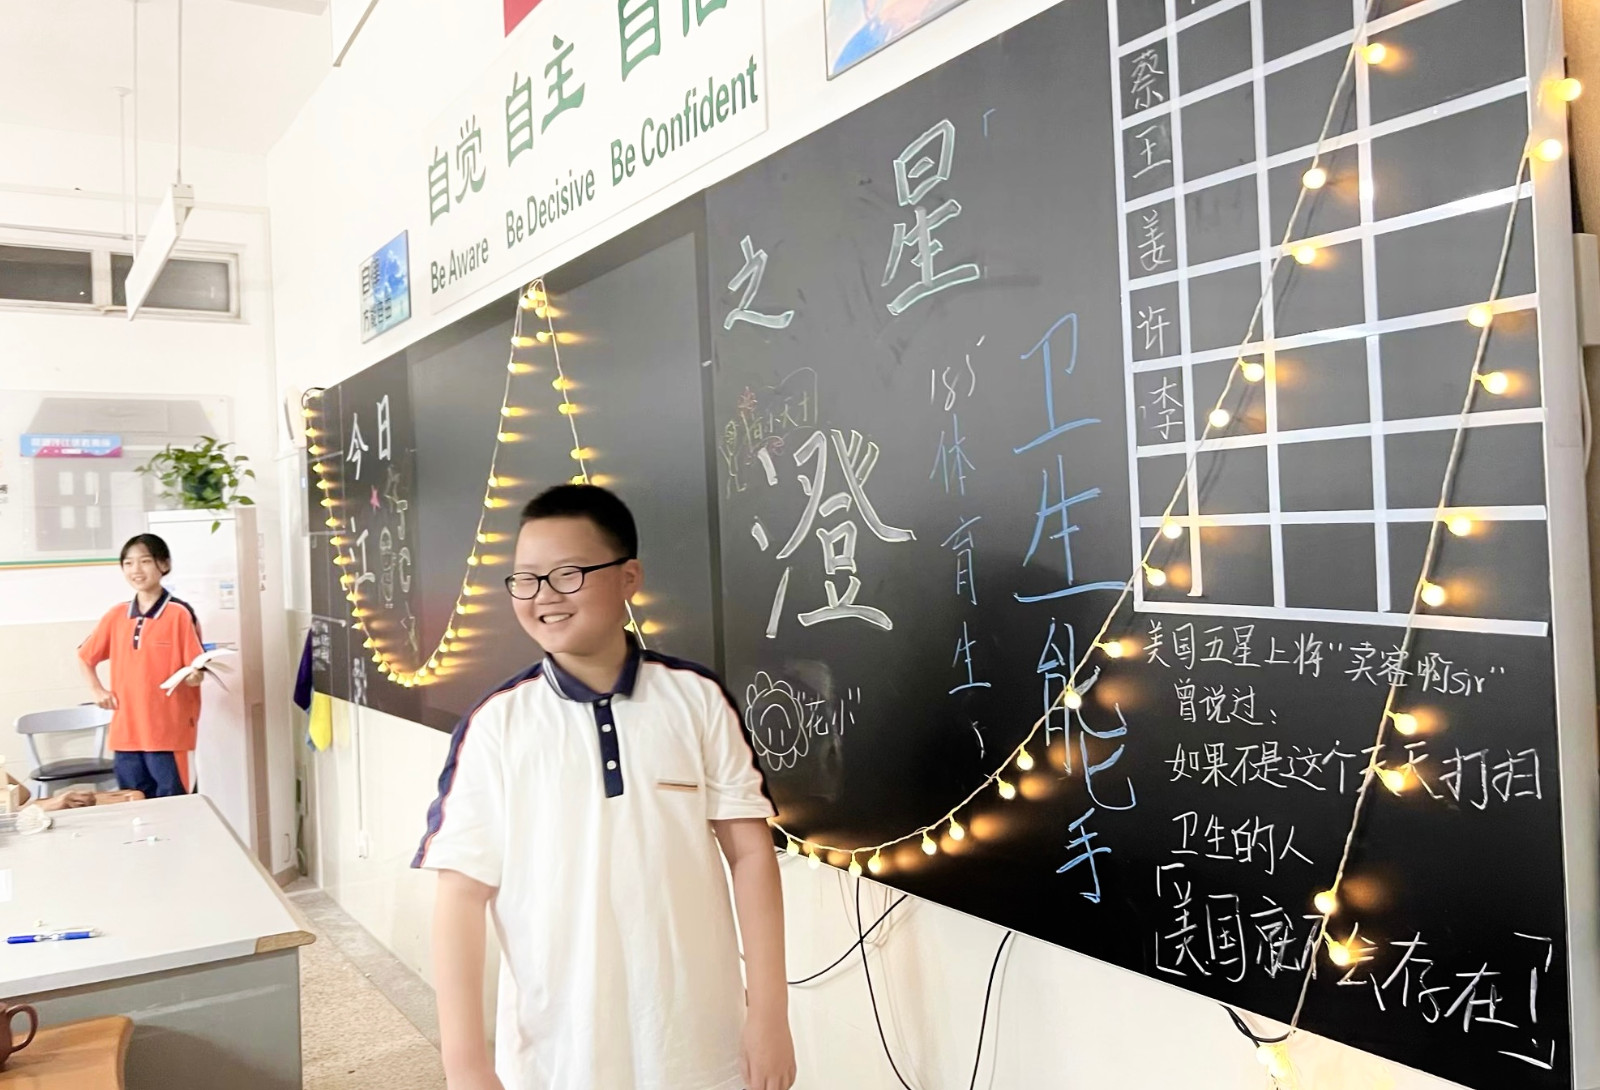 自觉 自主 自信
Be Aware Be Decisive Be Confident
今日
之
星
江
澄
185
体育生
卫生能手
"花小"
蔡
王
姜
许
李
美国五星上将"卖窖啊sir"
曾说过:
如果不是这个天天打扫
卫生的人
「美国就不会存在!」